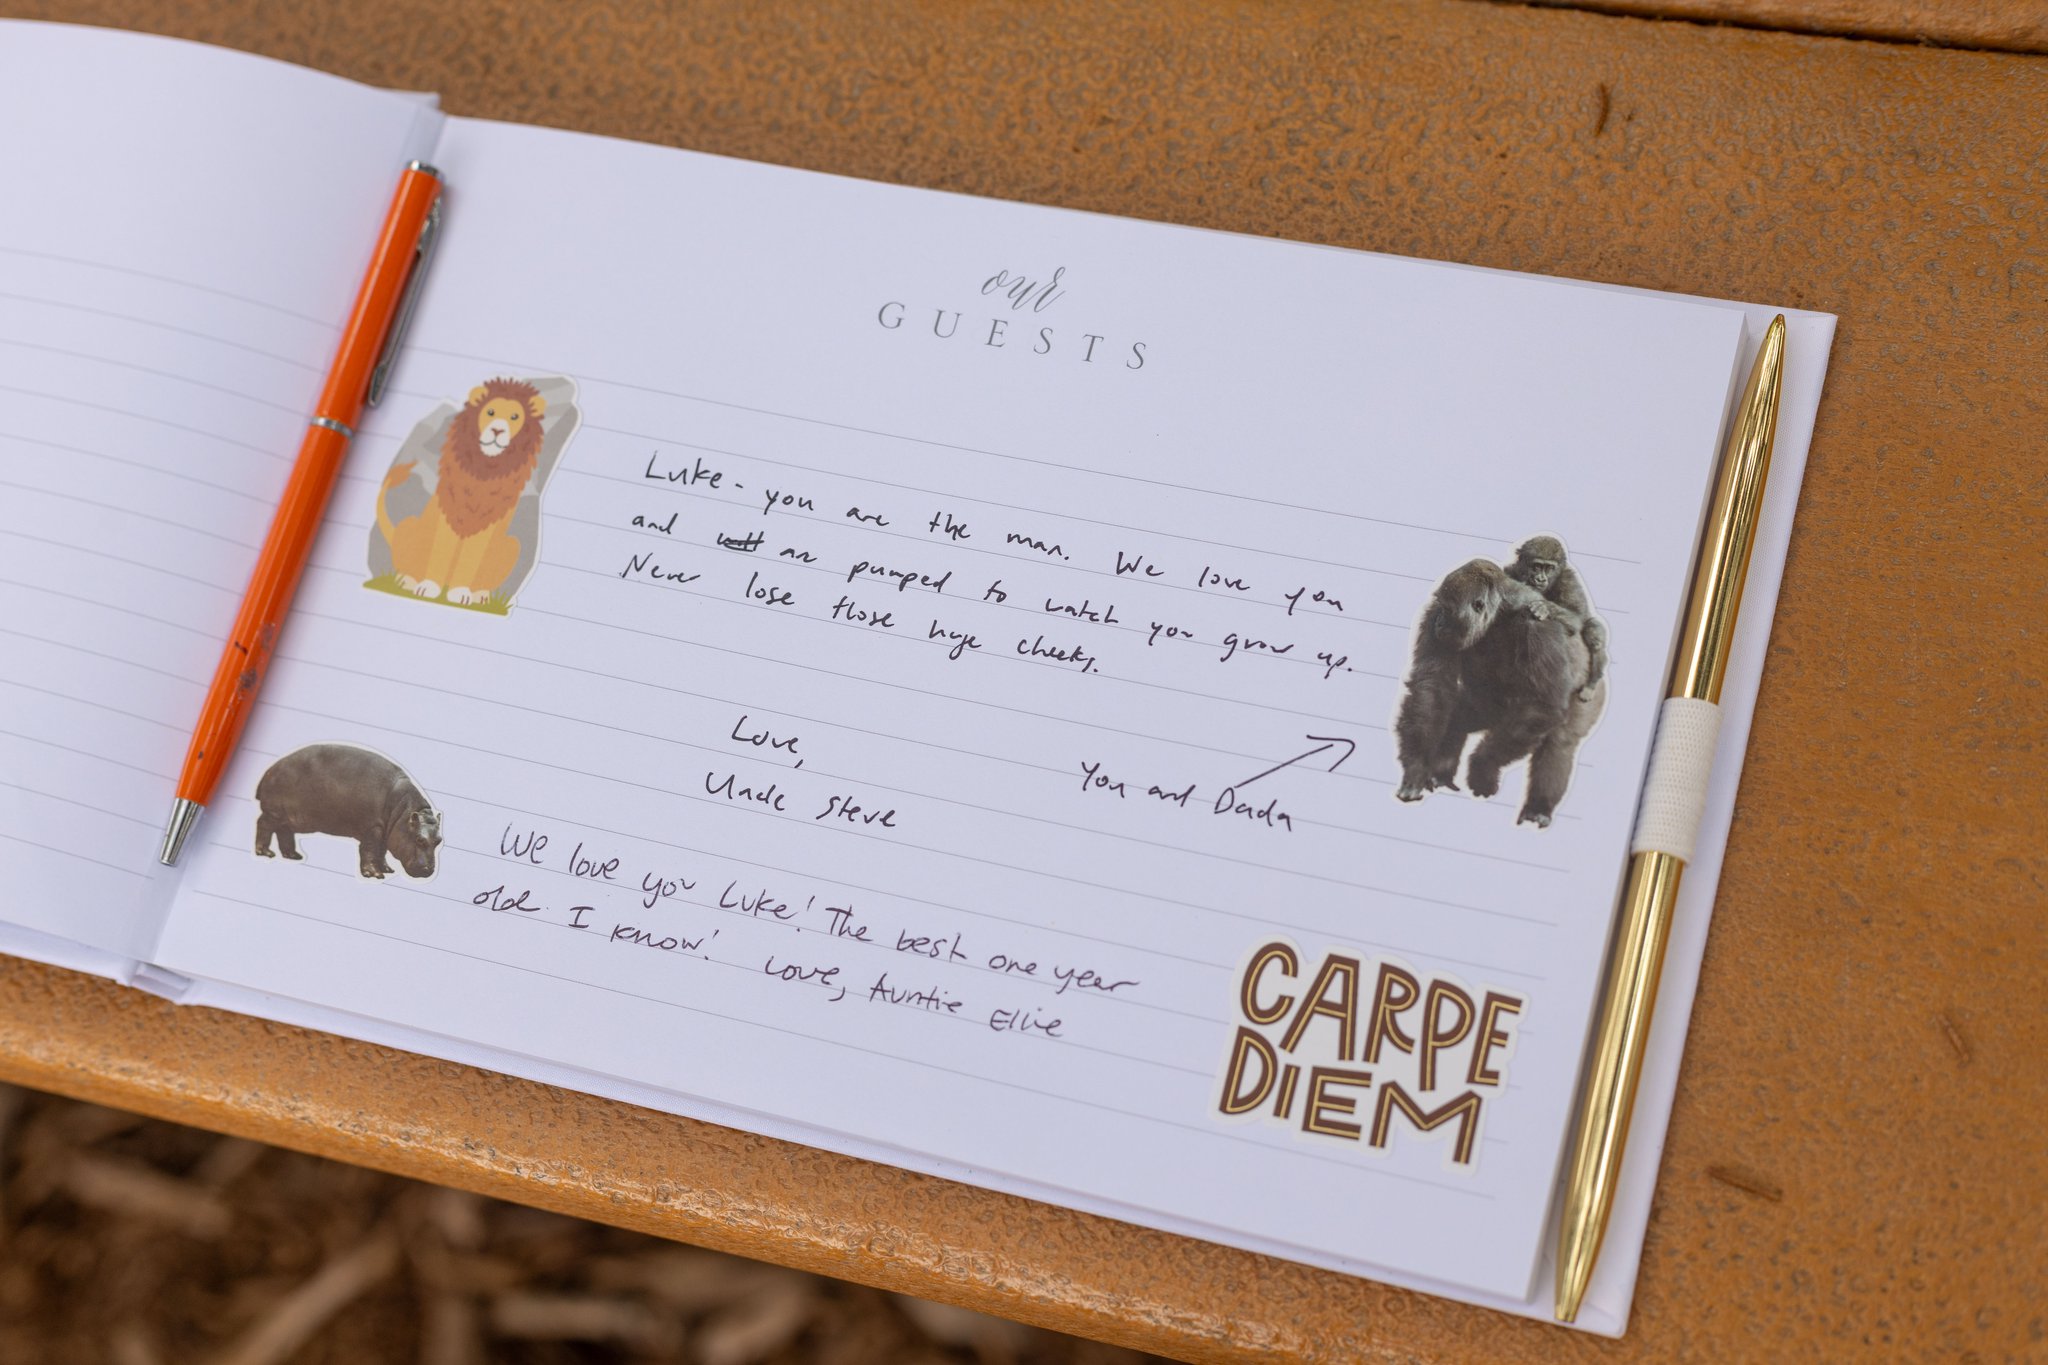 our
GUESTS
Luke - you are the man. We love you
and will are pumped to watch you grow up.
Never lose those huge cheeks.
Love,
Uncle Steve
You and Dada
We love you Luke! The best one year
old I know! Love, Auntie Ellie
CARPE
DIEM